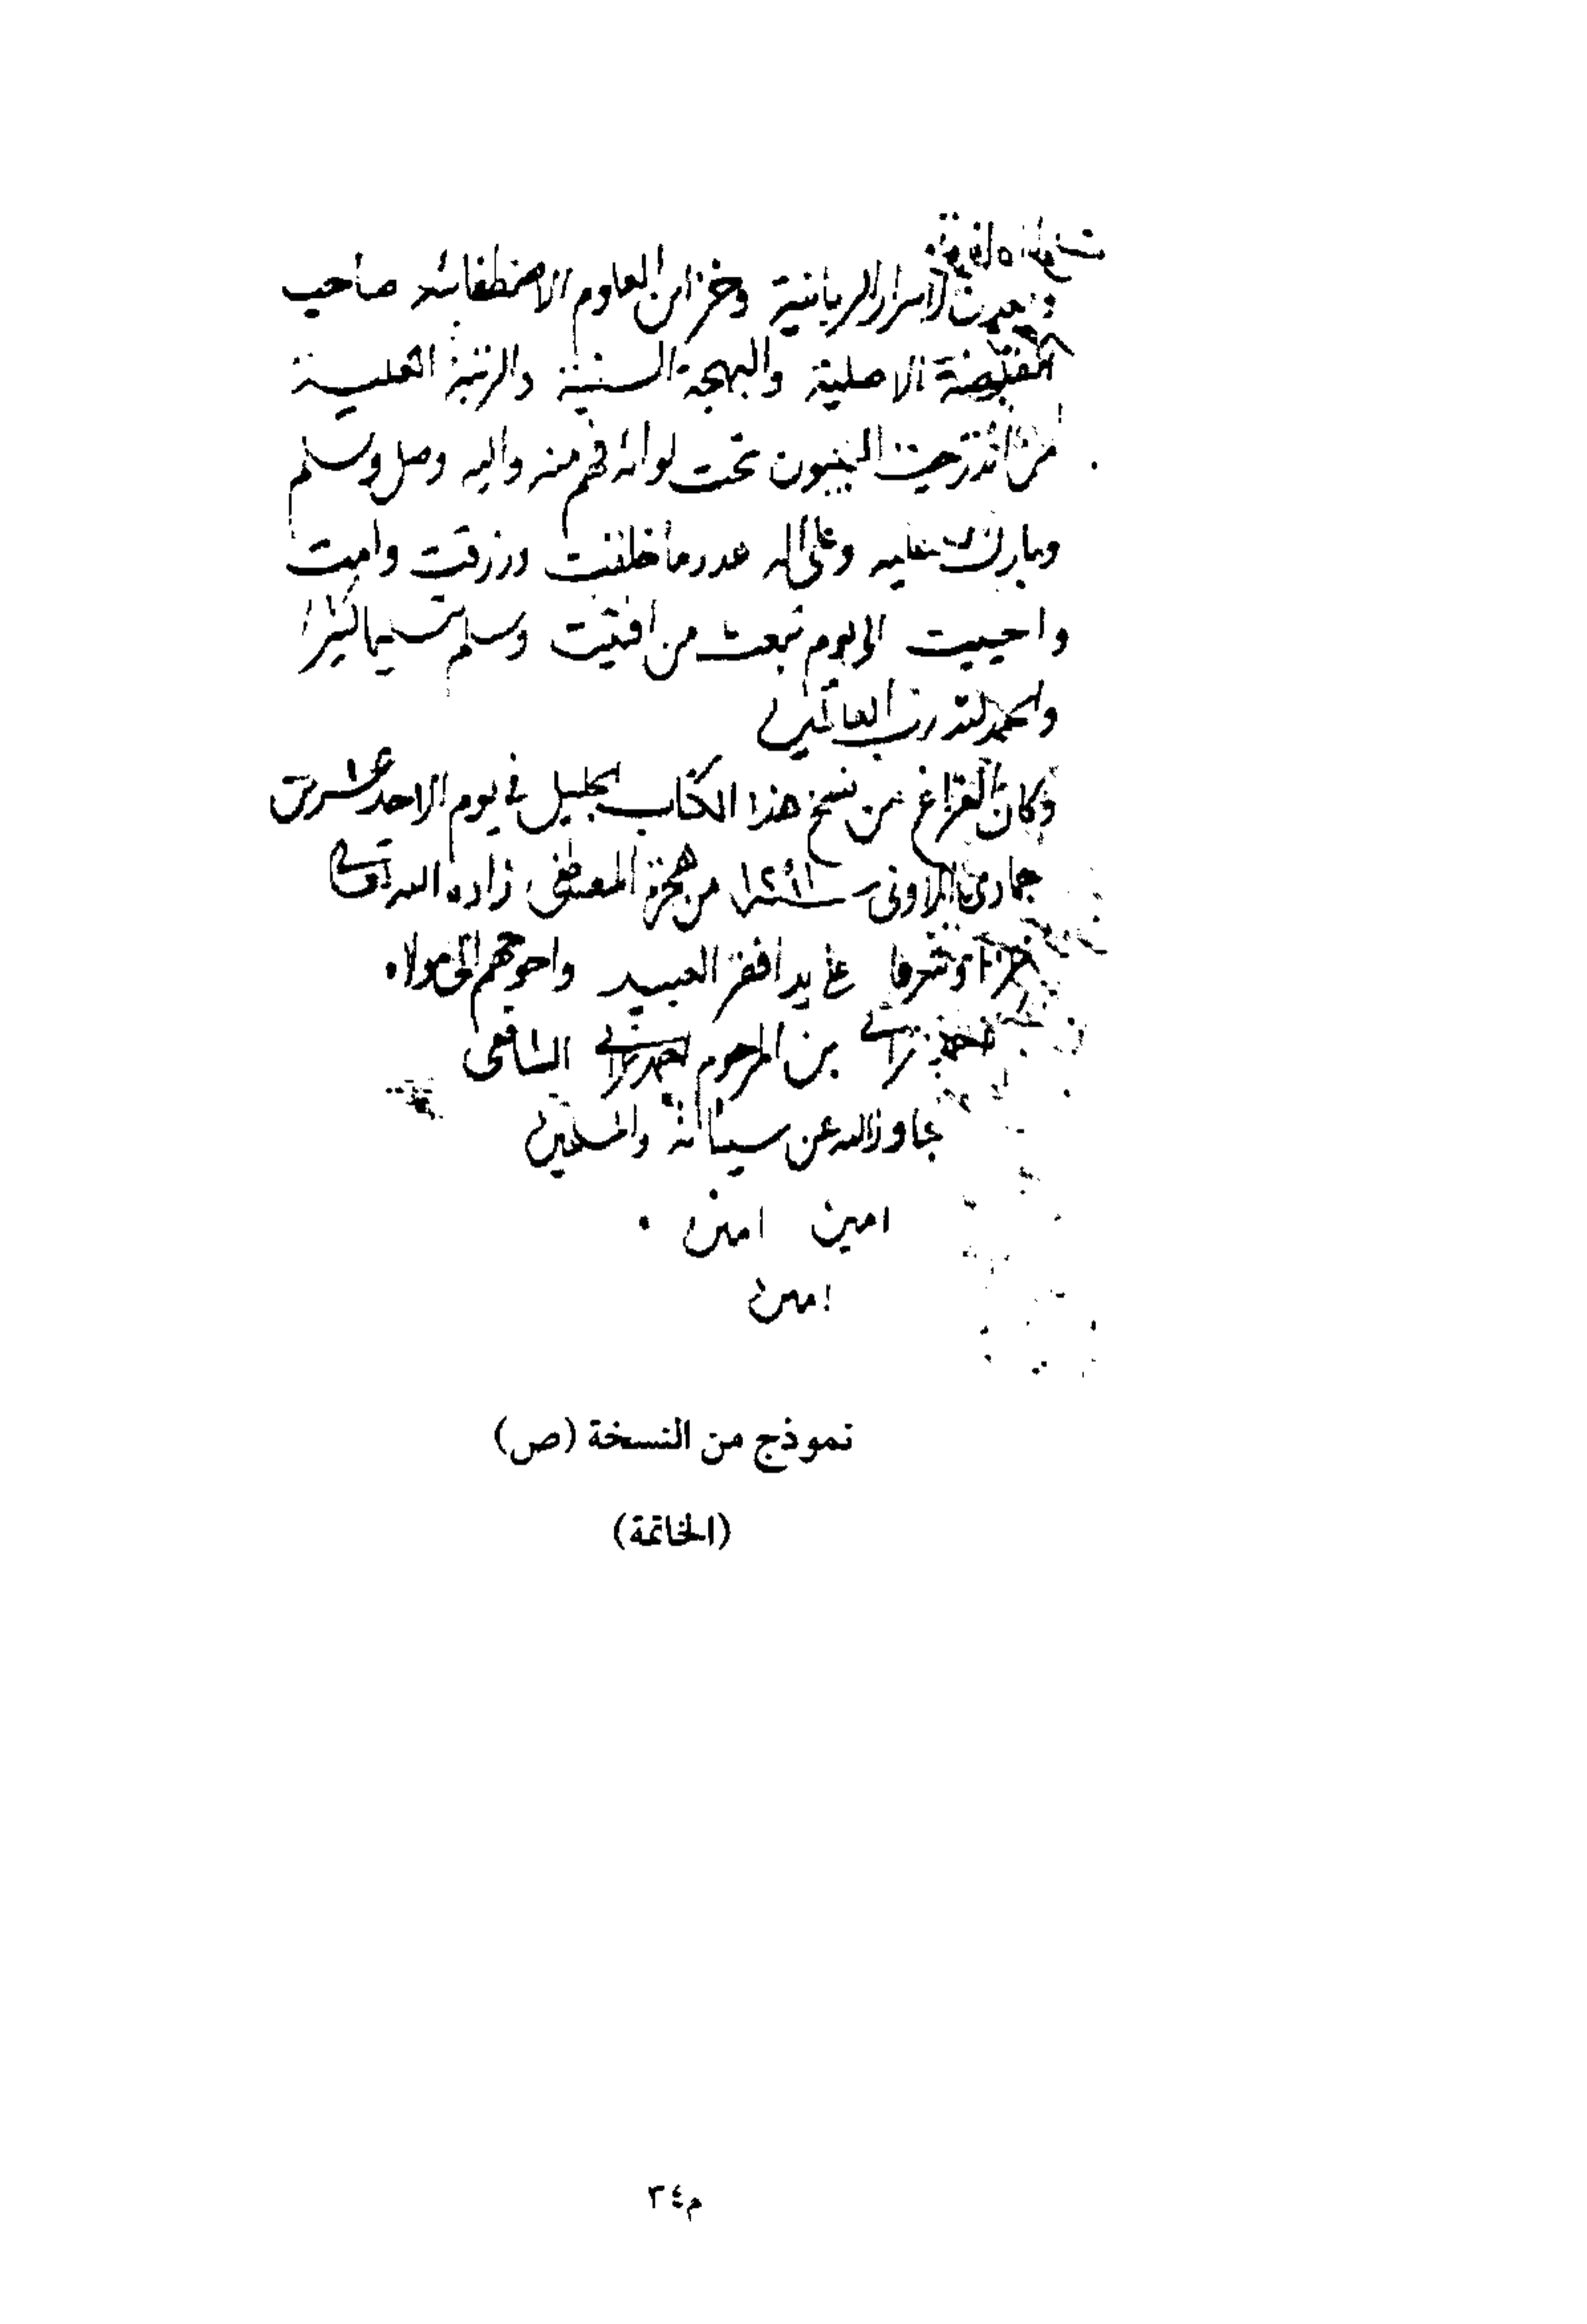 ومعدن الاسرار الربانية وخزاين العلوم الاصطفائية صاحب
القبضة الاصلية والبهجة السنية والرتبة العلية
من اندرجت النبيون تحت لوائه فهم منه واليه وصل وسلم
وبارك عليه وعلى اله عدد ما خلقت ورزقت وامت
واحييت الى يوم تبعث من افنيت وسلم تسليما كثيرا
والحمد لله رب العالمين
وكان الفراغ من نسخ هذا الكتاب الجليل في يوم الاحد
جمادى الاولى سنة من هجرة المصطفى زاده الله تعالى
وشرفا على يد افقر العبيد واحوجهم الى مولاه
بن المرحوم الشافعى
تجاوز الله عن سيئاته والمسلمين
امين امين
امين
نموذج من النسخة (ص)
(الخاتمة)
م٣٤